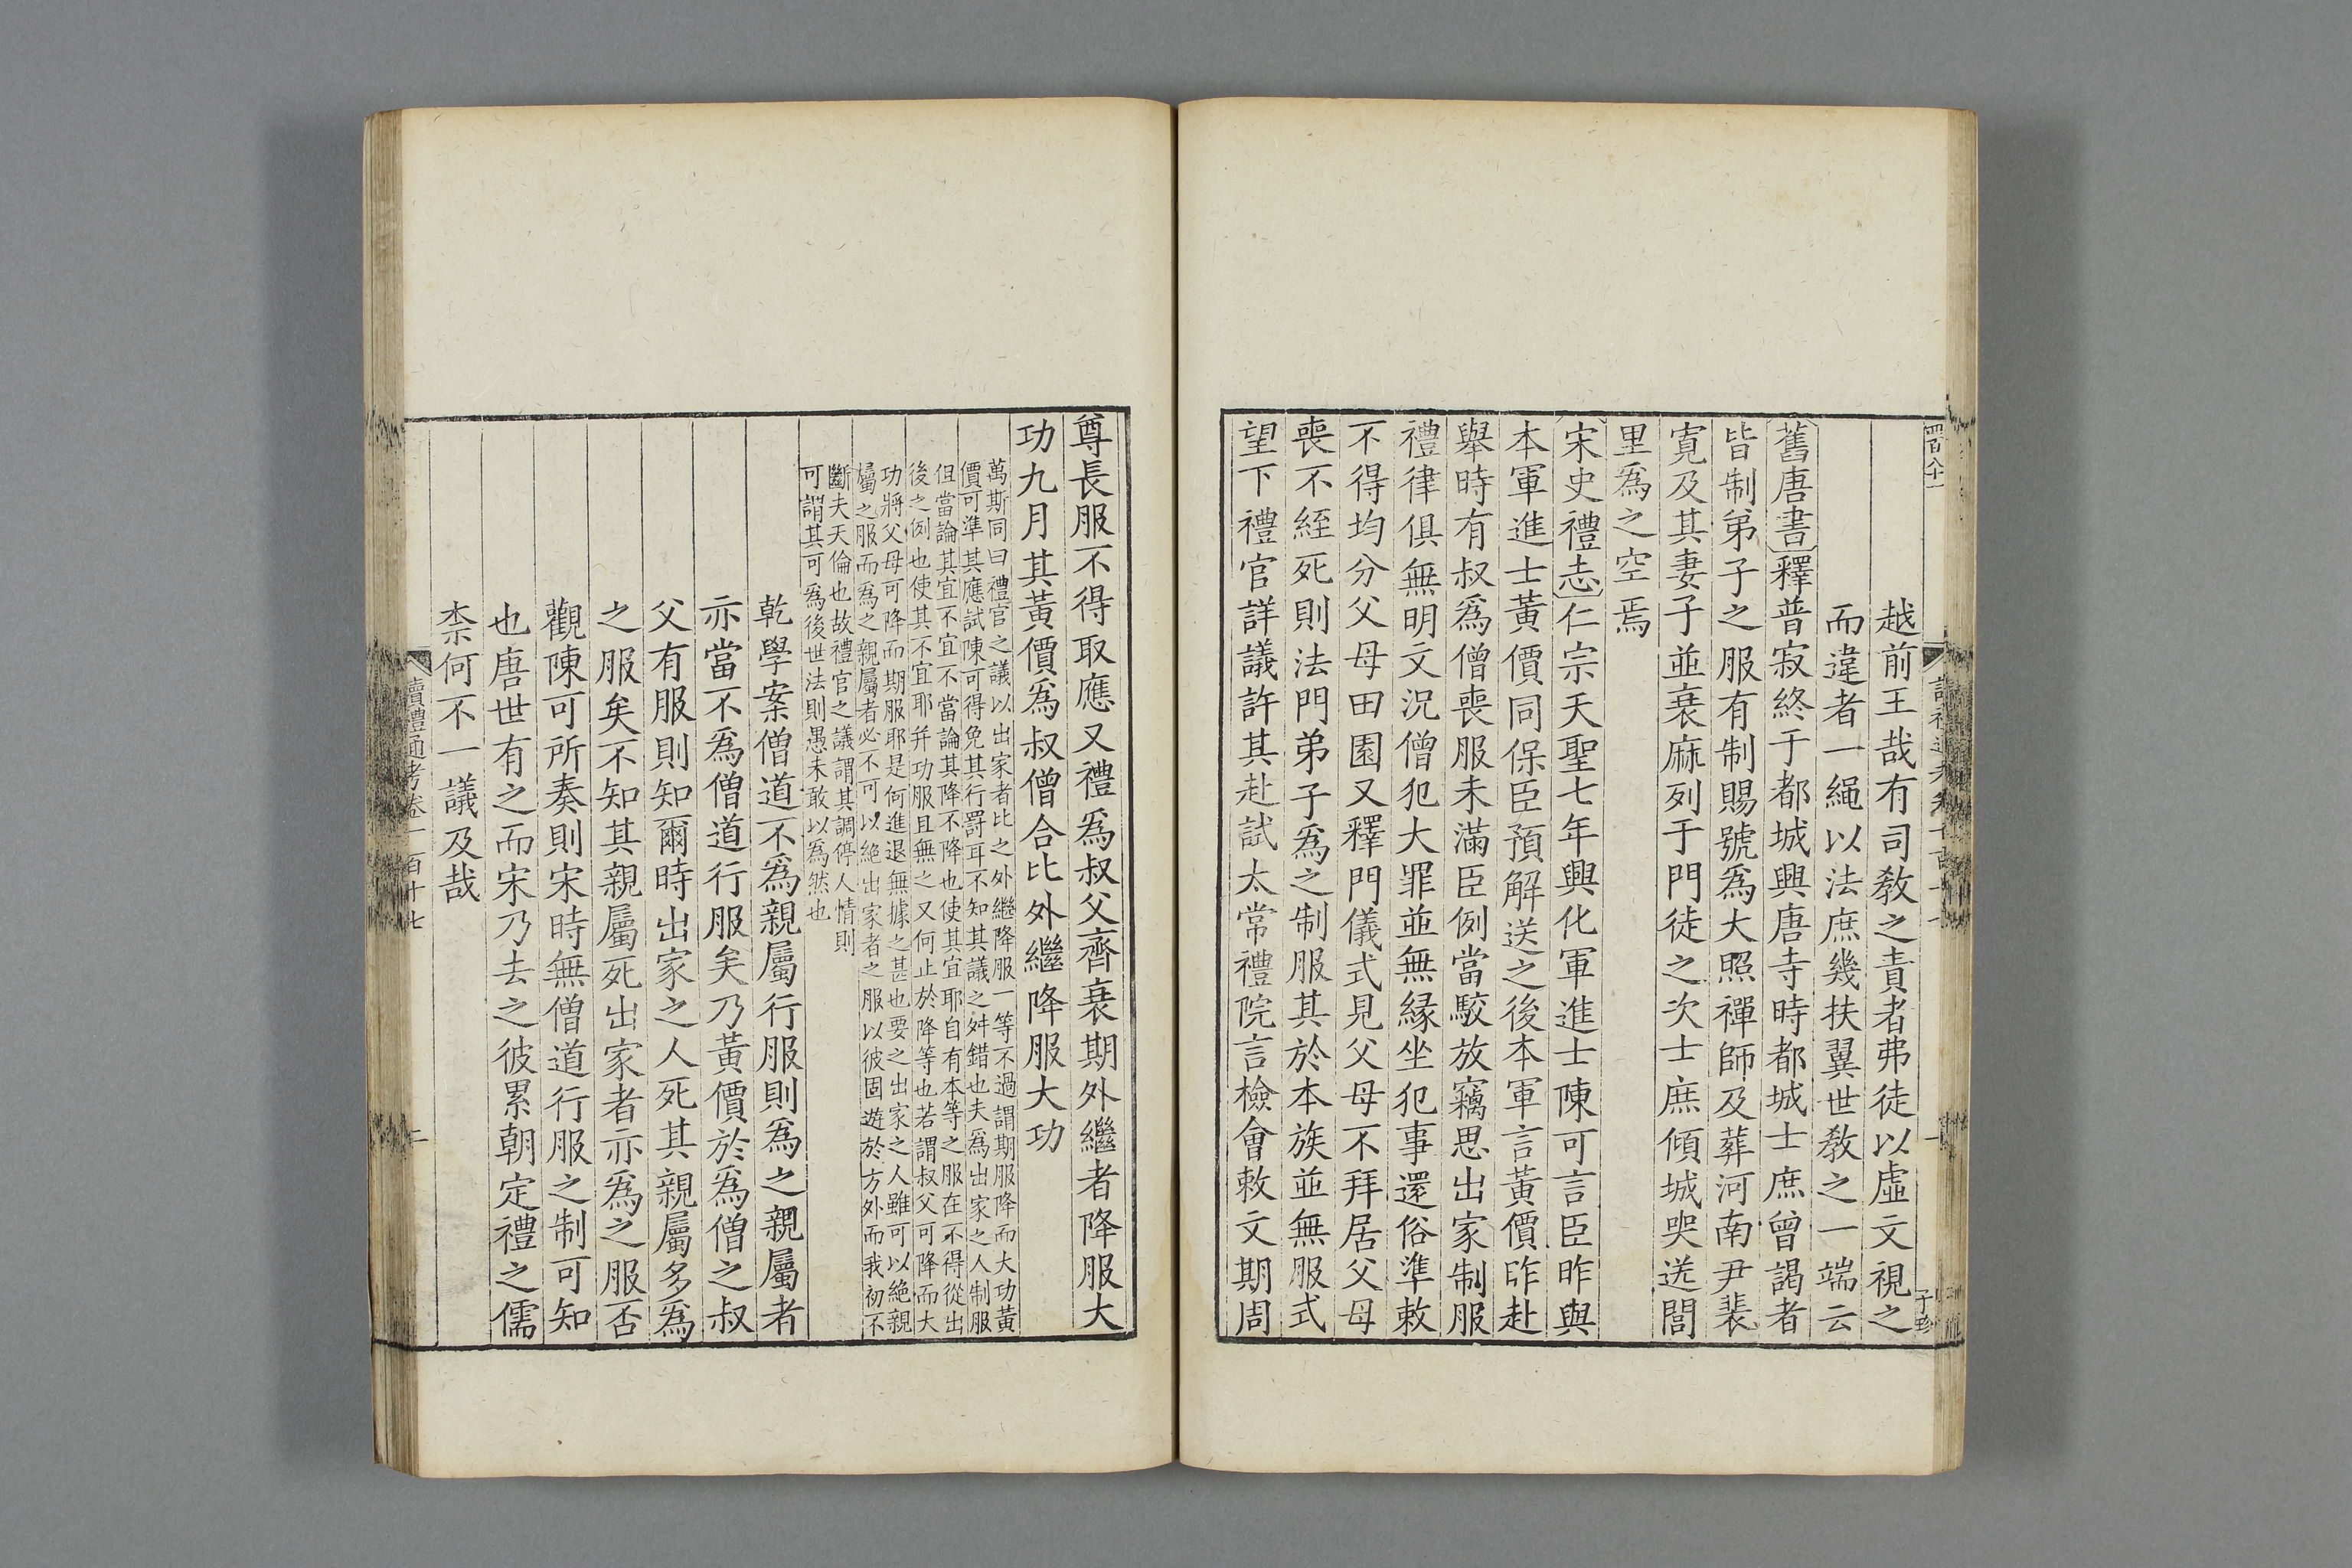 四百八十一
越前王哉有司教之責者弗徒以虛文視之
而違者一繩以法庶幾扶翼世教之一端云
舊唐書釋普寂終于都城興唐寺時都城士庶曾謁者
皆制弟子之服有制賜號爲大照禪師及葬河南尹裴
寛及其妻子並衰麻列于門徒之次士庶傾城哭送閭
里爲之空焉
宋史禮志仁宗天聖七年興化軍進士陳可言臣昨與
本軍進士黃價同保臣預解送之後本軍言黃價昨赴
舉時有叔爲僧喪服未滿臣例當駮放竊思出家制服
禮律俱無明文況僧犯大罪並無縁坐犯事還俗準敕
不得均分父母田園又釋門儀式見父母不拜居父母
喪不絰死則法門弟子爲之制服其於本族並無服式
望下禮官詳議許其赴試太常禮院言檢會敕文期周
尊長服不得取應又禮爲叔父齊衰期外繼者降服大
功九月其黃價爲叔僧合比外繼降服大功
萬斯同曰禮官之議以出家者比之外繼降服一等不過謂期服降而大功黃
價可準其應試陳可得免其行罰耳不知其議之舛錯也夫爲出家之人制服
但當論其宜不宜不當論其降不降也使其宜耶自有本等之服在不得從出
後之例也使其不宜耶幷功服且無之又何止於降等也若謂叔父可降而大
功將父母可降而期服耶是何進退無據之甚也要之出家之人雖可以絶親
屬之服而爲之親屬者必不可以絶出家者之服以彼固遊於方外而我初不
斷夫天倫也故禮官之議謂其調停人情則
可謂其可爲後世法則愚未敢以爲然也
乾學案僧道不爲親屬行服則爲之親屬者
亦當不爲僧道行服矣乃黃價於爲僧之叔
父有服則知爾時出家之人死其親屬多爲
之服矣不知其親屬死出家者亦爲之服否
觀陳可所奏則宋時無僧道行服之制可知
也唐世有之而宋乃去之彼累朝定禮之儒
柰何不一議及哉
讀禮通考卷一百十七
二